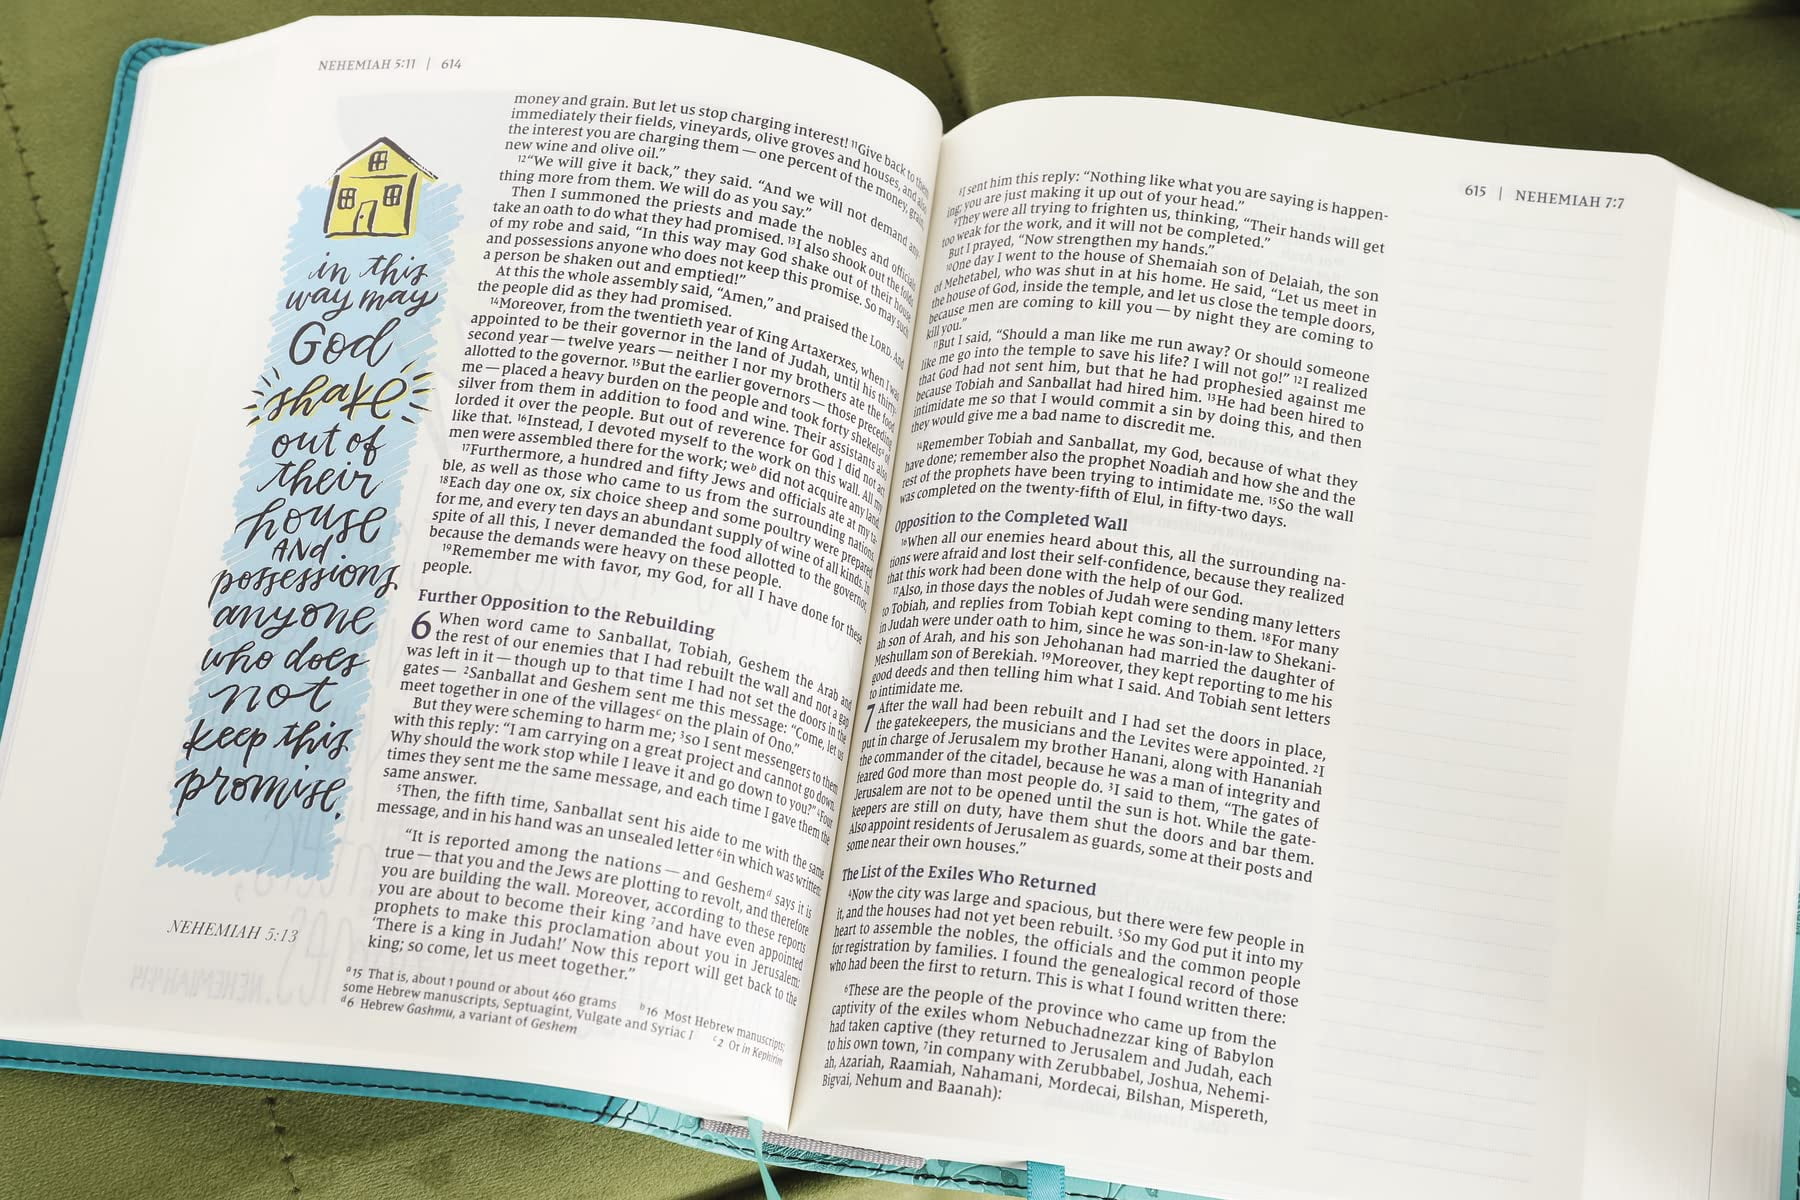 NEHEMIAH 5:11 | 614
in this
way may
God
shake
out of
their
house
AND
possessions
anyone
who does
not
keep this
promise.
NEHEMIAH 5:13
money and grain. But let us stop charging interest! 11Give back to them
immediately their fields, vineyards, olive groves and houses, and also
the interest you are charging them — one percent of the money, grain,
new wine and olive oil.”
12“We will give it back,” they said. “And we will not demand any-
thing more from them. We will do as you say.”
Then I summoned the priests and made the nobles and officials
take an oath to do what they had promised. 13I also shook out the folds
of my robe and said, “In this way may God shake out of their house
and possessions anyone who does not keep this promise. So may such
a person be shaken out and emptied!”
At this the whole assembly said, “Amen,” and praised the LORD. And
the people did as they had promised.
14Moreover, from the twentieth year of King Artaxerxes, when I was
appointed to be their governor in the land of Judah, until his thirty-
second year — twelve years — neither I nor my brothers ate the food
allotted to the governor. 15But the earlier governors — those preceding
me — placed a heavy burden on the people and took forty shekelsa of
silver from them in addition to food and wine. Their assistants also
lorded it over the people. But out of reverence for God I did not act
like that. 16Instead, I devoted myself to the work on this wall. All my
men were assembled there for the work; web did not acquire any land.
17Furthermore, a hundred and fifty Jews and officials ate at my ta-
ble, as well as those who came to us from the surrounding nations.
18Each day one ox, six choice sheep and some poultry were prepared
for me, and every ten days an abundant supply of wine of all kinds. In
spite of all this, I never demanded the food allotted to the governor,
because the demands were heavy on these people.
19Remember me with favor, my God, for all I have done for these
people.
Further Opposition to the Rebuilding
6 When word came to Sanballat, Tobiah, Geshem the Arab and
the rest of our enemies that I had rebuilt the wall and not a gap
was left in it — though up to that time I had not set the doors in the
gates — 2Sanballat and Geshem sent me this message: “Come, let us
meet together in one of the villagesc on the plain of Ono.”
But they were scheming to harm me; 3so I sent messengers to them
with this reply: “I am carrying on a great project and cannot go down.
Why should the work stop while I leave it and go down to you?” 4Four
times they sent me the same message, and each time I gave them the
same answer.
5Then, the fifth time, Sanballat sent his aide to me with the same
message, and in his hand was an unsealed letter 6in which was written:
“It is reported among the nations — and Geshemd says it is
true — that you and the Jews are plotting to revolt, and therefore
you are building the wall. Moreover, according to these reports
you are about to become their king 7and have even appointed
prophets to make this proclamation about you in Jerusalem:
‘There is a king in Judah!’ Now this report will get back to the
king; so come, let us meet together.”
a15 That is, about 1 pound or about 460 grams b16 Most Hebrew manuscripts;
some Hebrew manuscripts, Septuagint, Vulgate and Syriac I c2 Or in Kephirim
d6 Hebrew Gashmu, a variant of Geshem
615 | NEHEMIAH 7:7
8I sent him this reply: “Nothing like what you are saying is happen-
ing; you are just making it up out of your head.”
9They were all trying to frighten us, thinking, “Their hands will get
too weak for the work, and it will not be completed.”
But I prayed, “Now strengthen my hands.”
10One day I went to the house of Shemaiah son of Delaiah, the son
of Mehetabel, who was shut in at his home. He said, “Let us meet in
the house of God, inside the temple, and let us close the temple doors,
because men are coming to kill you — by night they are coming to
kill you.”
11But I said, “Should a man like me run away? Or should someone
like me go into the temple to save his life? I will not go!” 12I realized
that God had not sent him, but that he had prophesied against me
because Tobiah and Sanballat had hired him. 13He had been hired to
intimidate me so that I would commit a sin by doing this, and then
they would give me a bad name to discredit me.
14Remember Tobiah and Sanballat, my God, because of what they
have done; remember also the prophet Noadiah and how she and the
rest of the prophets have been trying to intimidate me. 15So the wall
was completed on the twenty-fifth of Elul, in fifty-two days.
Opposition to the Completed Wall
16When all our enemies heard about this, all the surrounding na-
tions were afraid and lost their self-confidence, because they realized
that this work had been done with the help of our God.
17Also, in those days the nobles of Judah were sending many letters
to Tobiah, and replies from Tobiah kept coming to them. 18For many
in Judah were under oath to him, since he was son-in-law to Shekani-
ah son of Arah, and his son Jehohanan had married the daughter of
Meshullam son of Berekiah. 19Moreover, they kept reporting to me his
good deeds and then telling him what I said. And Tobiah sent letters
to intimidate me.
7 After the wall had been rebuilt and I had set the doors in place,
the gatekeepers, the musicians and the Levites were appointed. 2I
put in charge of Jerusalem my brother Hanani, along with Hananiah
the commander of the citadel, because he was a man of integrity and
feared God more than most people do. 3I said to them, “The gates of
Jerusalem are not to be opened until the sun is hot. While the gate-
keepers are still on duty, have them shut the doors and bar them.
Also appoint residents of Jerusalem as guards, some at their posts and
some near their own houses.”
The List of the Exiles Who Returned
4Now the city was large and spacious, but there were few people in
it, and the houses had not yet been rebuilt. 5So my God put it into my
heart to assemble the nobles, the officials and the common people
for registration by families. I found the genealogical record of those
who had been the first to return. This is what I found written there:
6These are the people of the province who came up from the
captivity of the exiles whom Nebuchadnezzar king of Babylon
had taken captive (they returned to Jerusalem and Judah, each
to his own town, 7in company with Zerubbabel, Joshua, Nehemi-
ah, Azariah, Raamiah, Nahamani, Mordecai, Bilshan, Mispereth,
Bigvai, Nehum and Baanah):